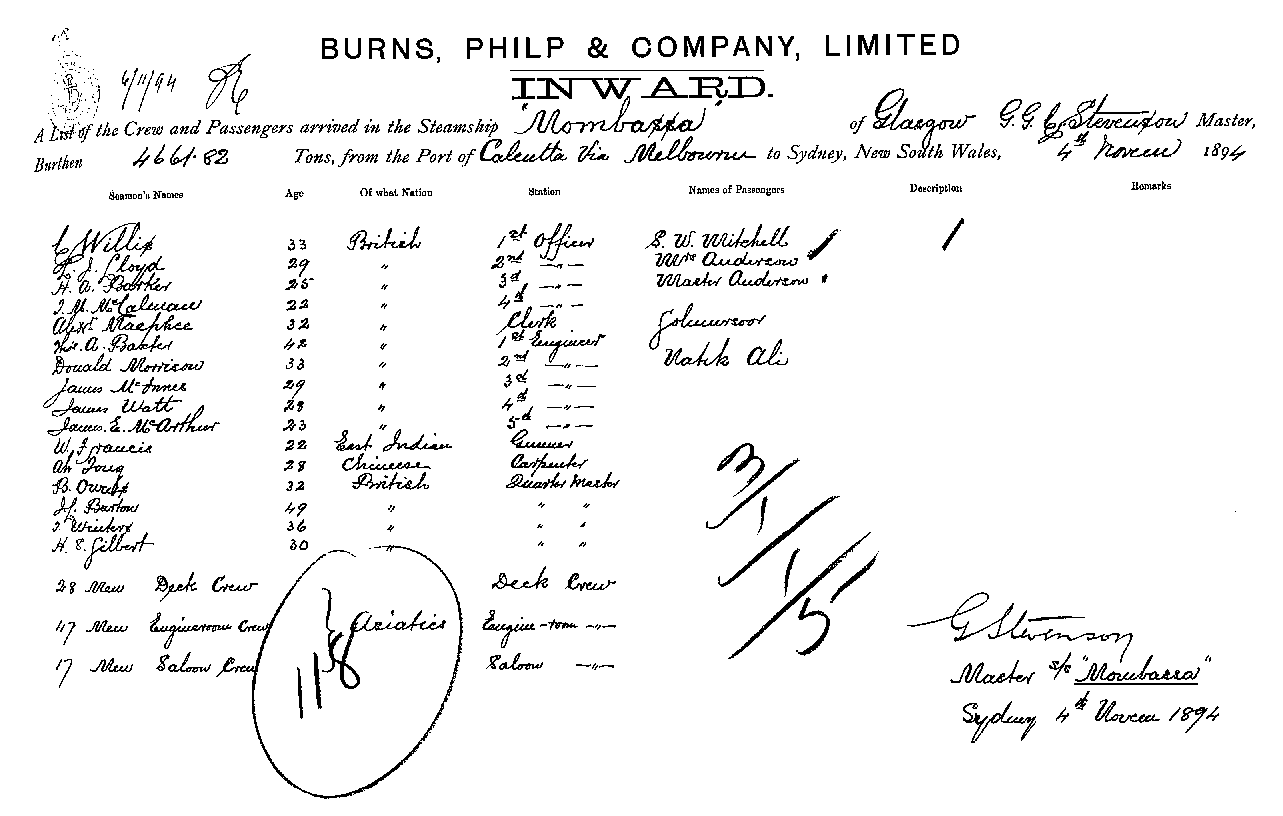 6/11/94
BURNS, PHILP & COMPANY, LIMITED
INWARD.
A List of the Crew and Passengers arrived in the Steamship "Mombassa" of Glasgow G. G. C. Stevenson Master,
Burthen 4661.82 Tons, from the Port of Calcutta Via Melbourne to Sydney, New South Wales, 4th Novem 1894
Seamen's Names Age Of what Nation Station Names of Passengers Description Remarks
C Willis 33 British 1st Officer S. W. Mitchell / /
J. Lloyd 29 " 2nd —"— Mrs Anderson
H. A. Barker 25 " 3d —"— Master Anderson
J. M. McCalman 22 " 4th —"—
Alexr Macphee 32 " Clerk
Thos. A. Baxter 42 " 1st Engineer
Donald Morrison 33 " 2nd —"— Ali
James McInnes 29 " 3d —"—
James Watt 28 " 4th —"—
James E. McArthur 23 " 5d —"—
W. Francis 22 East Indian Gunner
Ah Tong 28 Chinese Carpenter
B. Owens 32 British Quarter Master
Jf. Barton 49 " " "
J. Winters 36 " " "
H. E. Gilbert 30 " " "
28 Men Deck Crew Deck Crew
47 Men Engineroom Crew } Asiatics Engine-room —"—
17 Men Saloon Crew Saloon —"—
118
3/1/1/5
G Stevenson
Master s/s "Mombassa"
Sydney 4th Novem 1894